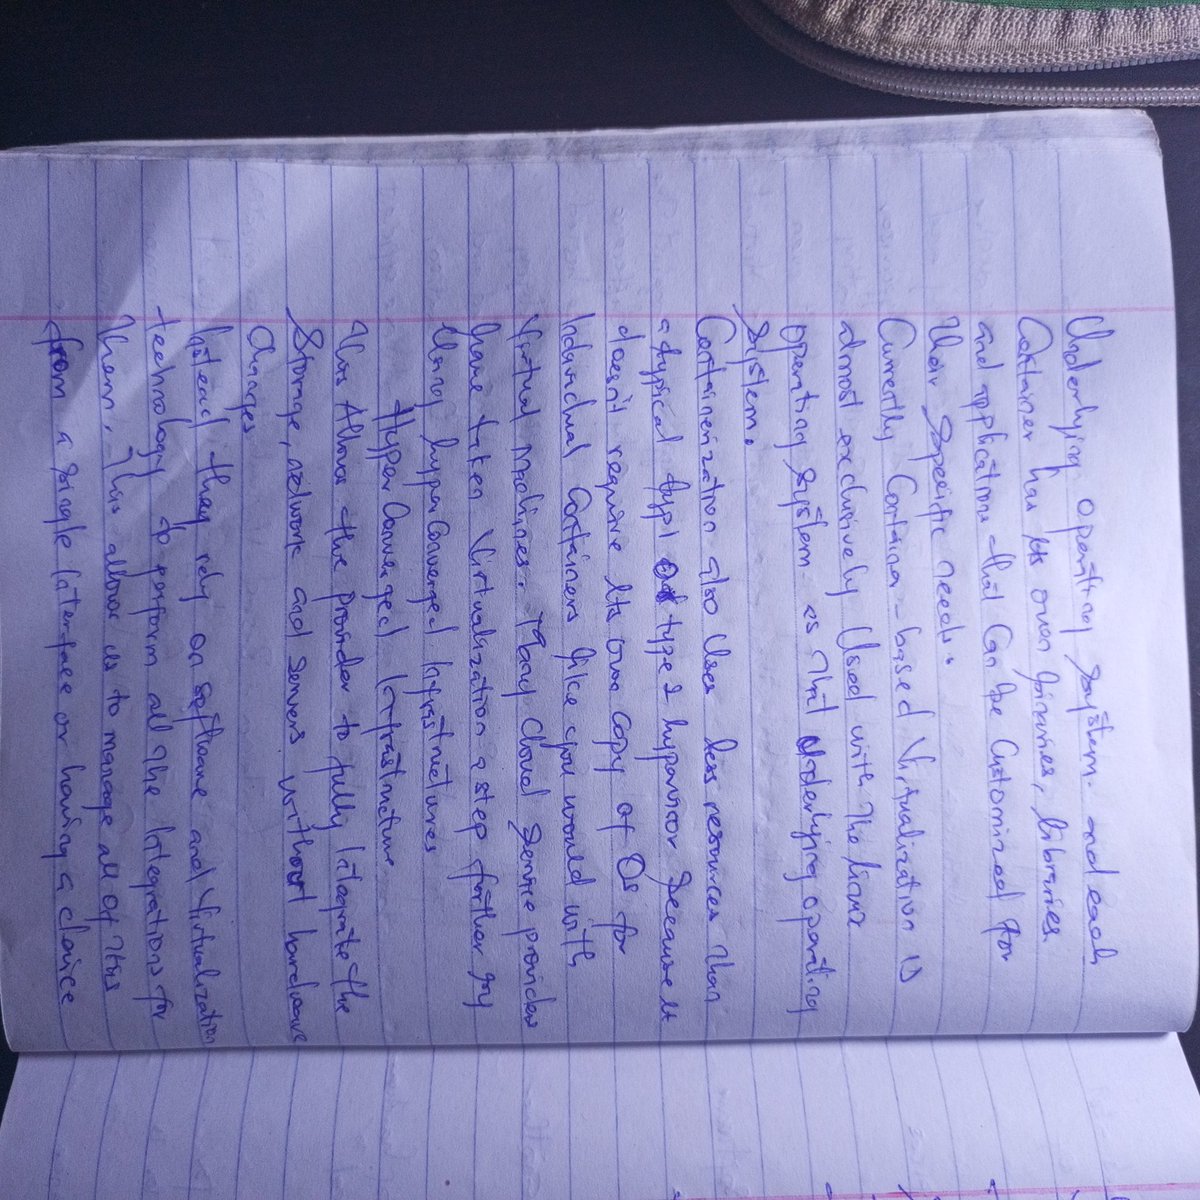 Underlying operating system. and each
Container has its own binaries, libraries
and applications that can be customized for
their specific needs.
Currently Container-based Virtualization is
almost exclusively Used with the linux
operating system as that Underlying operating
System.
Containerization also Uses less resources than
a typical type1 or type 2 hypervisor because it
doesn't require its own copy of Os for
Individual Containers like you would with
Virtual Machines. Many Cloud Service providers
have taken Virtualization a step further by
Using hyperconverged Infrastructures
HyperConverged Infrastructure
this Allows the provider to fully Integrate the
Storage, network and servers without hardware
Changes
Instead they rely on software and Virtualization
technology to perform all the Integrations for
them. This allows us to manage all of this
from a single Interface or having a device